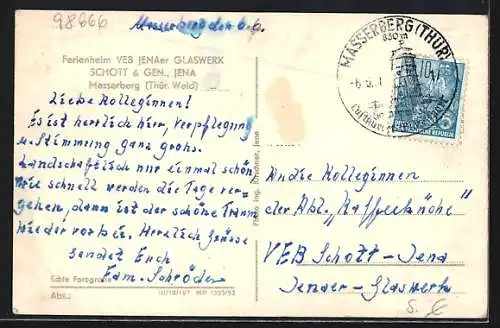 98666
Masserberg den 6.6.
Ferienheim VEB JENAer GLASWERK
SCHOTT & GEN., JENA
Masserberg (Thür. Wald)
Liebe Kolleginnen!
Es ist herrlich hier, Verpflegung
u. Stimmung ganz grohs.
Landschaftlich nur einmal schön,
wie schnell werden die Tage ver-
gehen, dann ist der schöne Traum
wieder vorbei. Herzlich Grüsse
sendet Euch
Fam. Schröder
Echte Fotografie
Abs.:
III/18/197
MASSERBERG (THÜR)
830 m
10
An die Kolleginnen
der Abt. "Kaffeeküche"
VEB Schott-Jena
Jenaer-Glaswerk